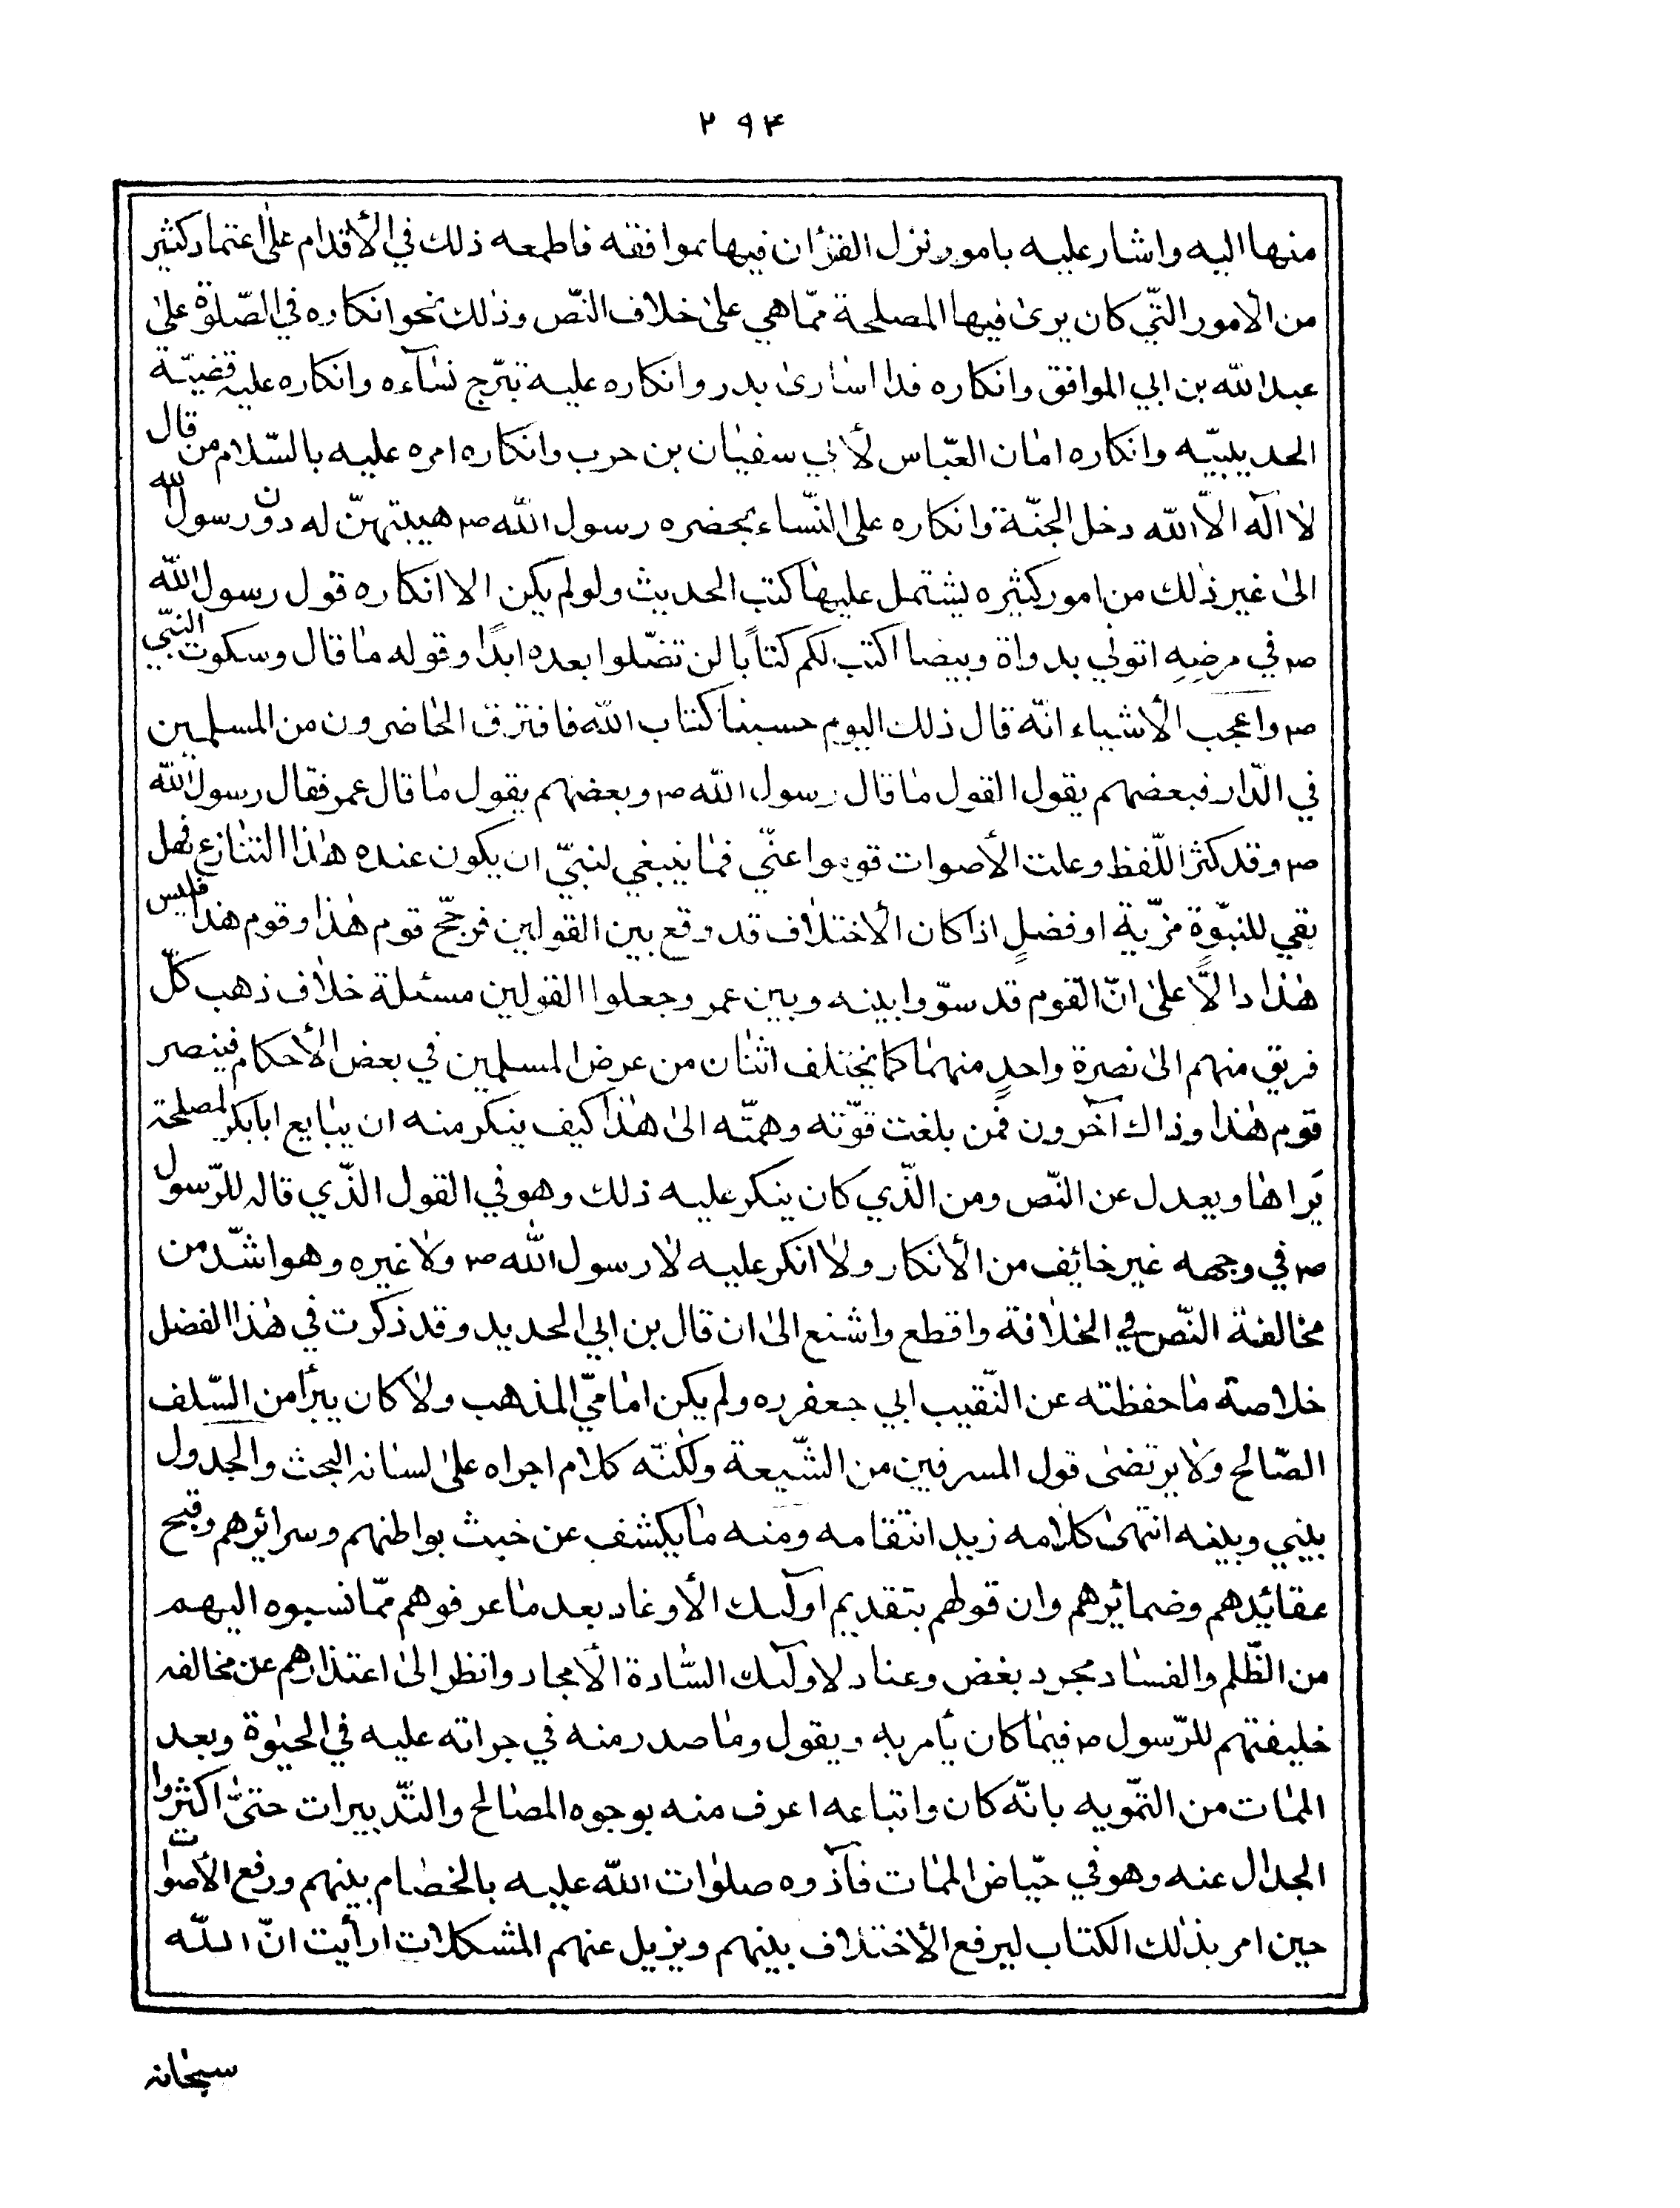 ٢٩٤
منها اليه واشار عليه بامور نزل القرٰان فيها بموافقه فاطمعه ذلك في الأقدام على اعتماد كثير
من الأمور التّي كان يرىٰ فيها المصلحة ممّا هي علىٰ خلاف النّص وذٰلك نحو انكاره في الصّلوٰة علىٰ
عبد الله بن ابي الموافق وانكاره فدا اسٰارىٰ بدر وانكاره عليه تبّرج نسٰآءه وانكاره عليه قضيّة
الحديبيّه وانكاره امٰان العبّاس لأبي سفيٰان بن حرب وانكاره امره عليه بالسّلام من قال
لٰا الٓه الّا الله دخل الجنّة وانكاره على النّساء بحضره رسول الله ص هيبتهنّ له دون رسول الله
الىٰ غير ذٰلك من امور كثيره يشتمل عليهٰا كتب الحديث ولو لم يكن الا انكاره قول رسول الله
ص في مرضِهِ اتوني بدواة وبيضا اكتب لكم كتاًبا لن تضّلوا بعده ابدًا وقوله مٰا قال وسكوت النبّي
ص واعجب الأشياء انّه قال ذلك اليوم حسبنا كتاب الله فافترق الحٰاضرون من المسلمين
في الدّار فبعضهم يقول القول مٰا قال رسول الله ص وبعضهم يقول مٰا قال عمر فقال رسول الله
ص وقد كثر اللّفظ وعلت الأصوات قوموا عنّي فمٰا ينبغي لنبيّ ان يكون عنده هٰذا التنٰازع فهل
بقي للنبّوةِ مزّية او فضلٍ اذا كان الأختلاف قد وقع بين القولين فرجّح قوم هٰذا وقوم هذا فليس
هٰذا دالًّا علىٰ انّ القوم قد سوّوا بينه وبين عمر وجعلوا القولين مسئلة خلاف ذهب كلّ
فريق منهم الىٰ نصرة واحدٍ منهمٰا كما يختلف اثنٰان من عرض المسلمين في بعض الأحكام فينصر
قوم هٰذا وذاك آخرون فمن بلغت قوّته وهمتّه الىٰ هٰذا كيف ينكر منه ان يبٰايع ابابكر لمصلحة
يَراهٰا ويعدل عن النّص ومن الّذي كان ينكر عليه ذلك وهو في القول الذّي قاله للرّسول
ص في وجهه غير خائف من الأنكار ولٰا انكر عليه لٰا رسول الله ص ولا غيره وهو اشدّ من
مخالفة النّص في الخلافة واقطع واشنع الىٰ ان قال بن ابي الحديد وقد ذكرت في هٰذا الفضل
خلاصة مٰا حفظته عن النّقيب ابي جعفر ره ولم يكن امٰاميّ المذهب ولٰا كان يبرأ من السّلف
الصّالح ولا يرتضىٰ قول المسرفين من الشّيعة ولٰكنّه كلام اجراه علىٰ لسٰانه البحث والجدول
بيني وبينه انتهىٰ كلامه زيد انتقامه ومنه مٰا يكشف عن خبث بواطنهم وسرائرهم وقبح
عقائدهم وضمائرهم وان قولهم بتقديم اولٓئك الأوغاد بعد مٰا عرفوهم ممّا نسبوه اليهم
من الظّلم والفسٰاد مجرد بغض وعناد لاولٓئك السّادة الأمجاد وانظر الىٰ اعتذارهم عن مخالفه
خليفتهم للرّسول ص فيمٰا كان يأمر به ويقول ومٰا صدر منه في جراته عليه في الحيٰوة وبعد
الممٰات من التمّويه بانّه كان واتباعه اعرف منه بوجوه المصٰالح والتّدبيرات حتىّٰ اكثروا
الجدٰال عنه وهو في حيّاض الممٰات فآذوه صلوٰات الله عليه بالخصٰام بينهم ورفع الأصوٰات
حين امر بذٰلك الكتاب ليرفع الأختلاف بينهم ويزيل عنهم المشكلات ارأيت انّ اللّه
سبحٰانه